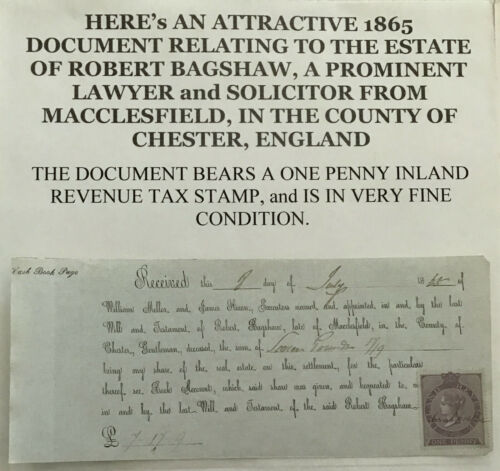 HERE's AN ATTRACTIVE 1865
DOCUMENT RELATING TO THE ESTATE
OF ROBERT BAGSHAW, A PROMINENT
LAWYER and SOLICITOR FROM
MACCLESFIELD, IN THE COUNTY OF
CHESTER, ENGLAND
THE DOCUMENT BEARS A ONE PENNY INLAND
REVENUE TAX STAMP, and IS IN VERY FINE
CONDITION.
Cash Book Page
Received this 9 day of July 186 of
William Mellor, and James Executors named and appointed, in and by the last
Will and Testament, of Robert Bagshaw, late of Macclesfield, in the County of
Chester, Gentleman, deceased, the sum of Seven Pounds 17/9
being my share of the real estate on this settlement, for the particulars
thereof see Book Account, which said share was given, and bequeathed to me
in and by the last Will and Testament, of the said Robert Bagshaw.
£ 7 17 9
INLAND REVENUE
ONE PENNY